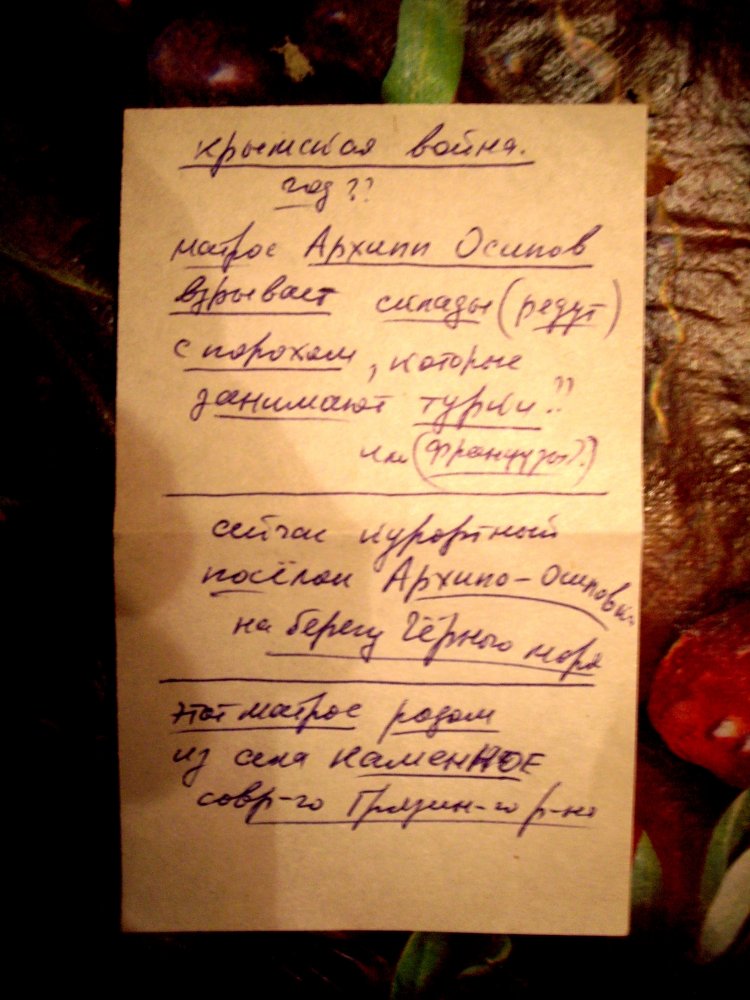 крымская война.
год ??
матрос Архипп Осипов
взрывает склады (редут)
с порохом, которые
занимают турки??
или (французы?)
сейчас курортный
посёлок Архипо-Осиповка
на берегу Чёрного моря
этот матрос родом
из села КАМЕННОЕ
совр-го Грязин-го р-на